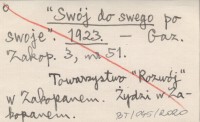 "Swój do swego po
swoje". 1923. — Gaz.
Zakop. 3, nr 51.
Towarzystwo "Rozwój"
w Zakopanem. Żydzi w Za-
kopanem.